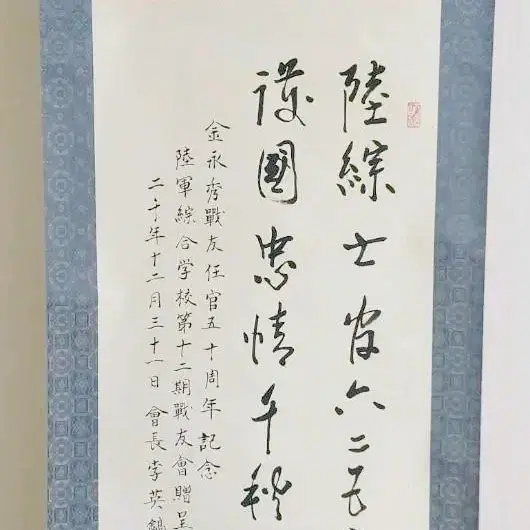 陸綜士官六二五
護國忠情千
金永秀戰友任官五十周年記念
陸軍綜合学校第十二期戰友會贈呈
二千年十二月三十一日 會長李英鶴